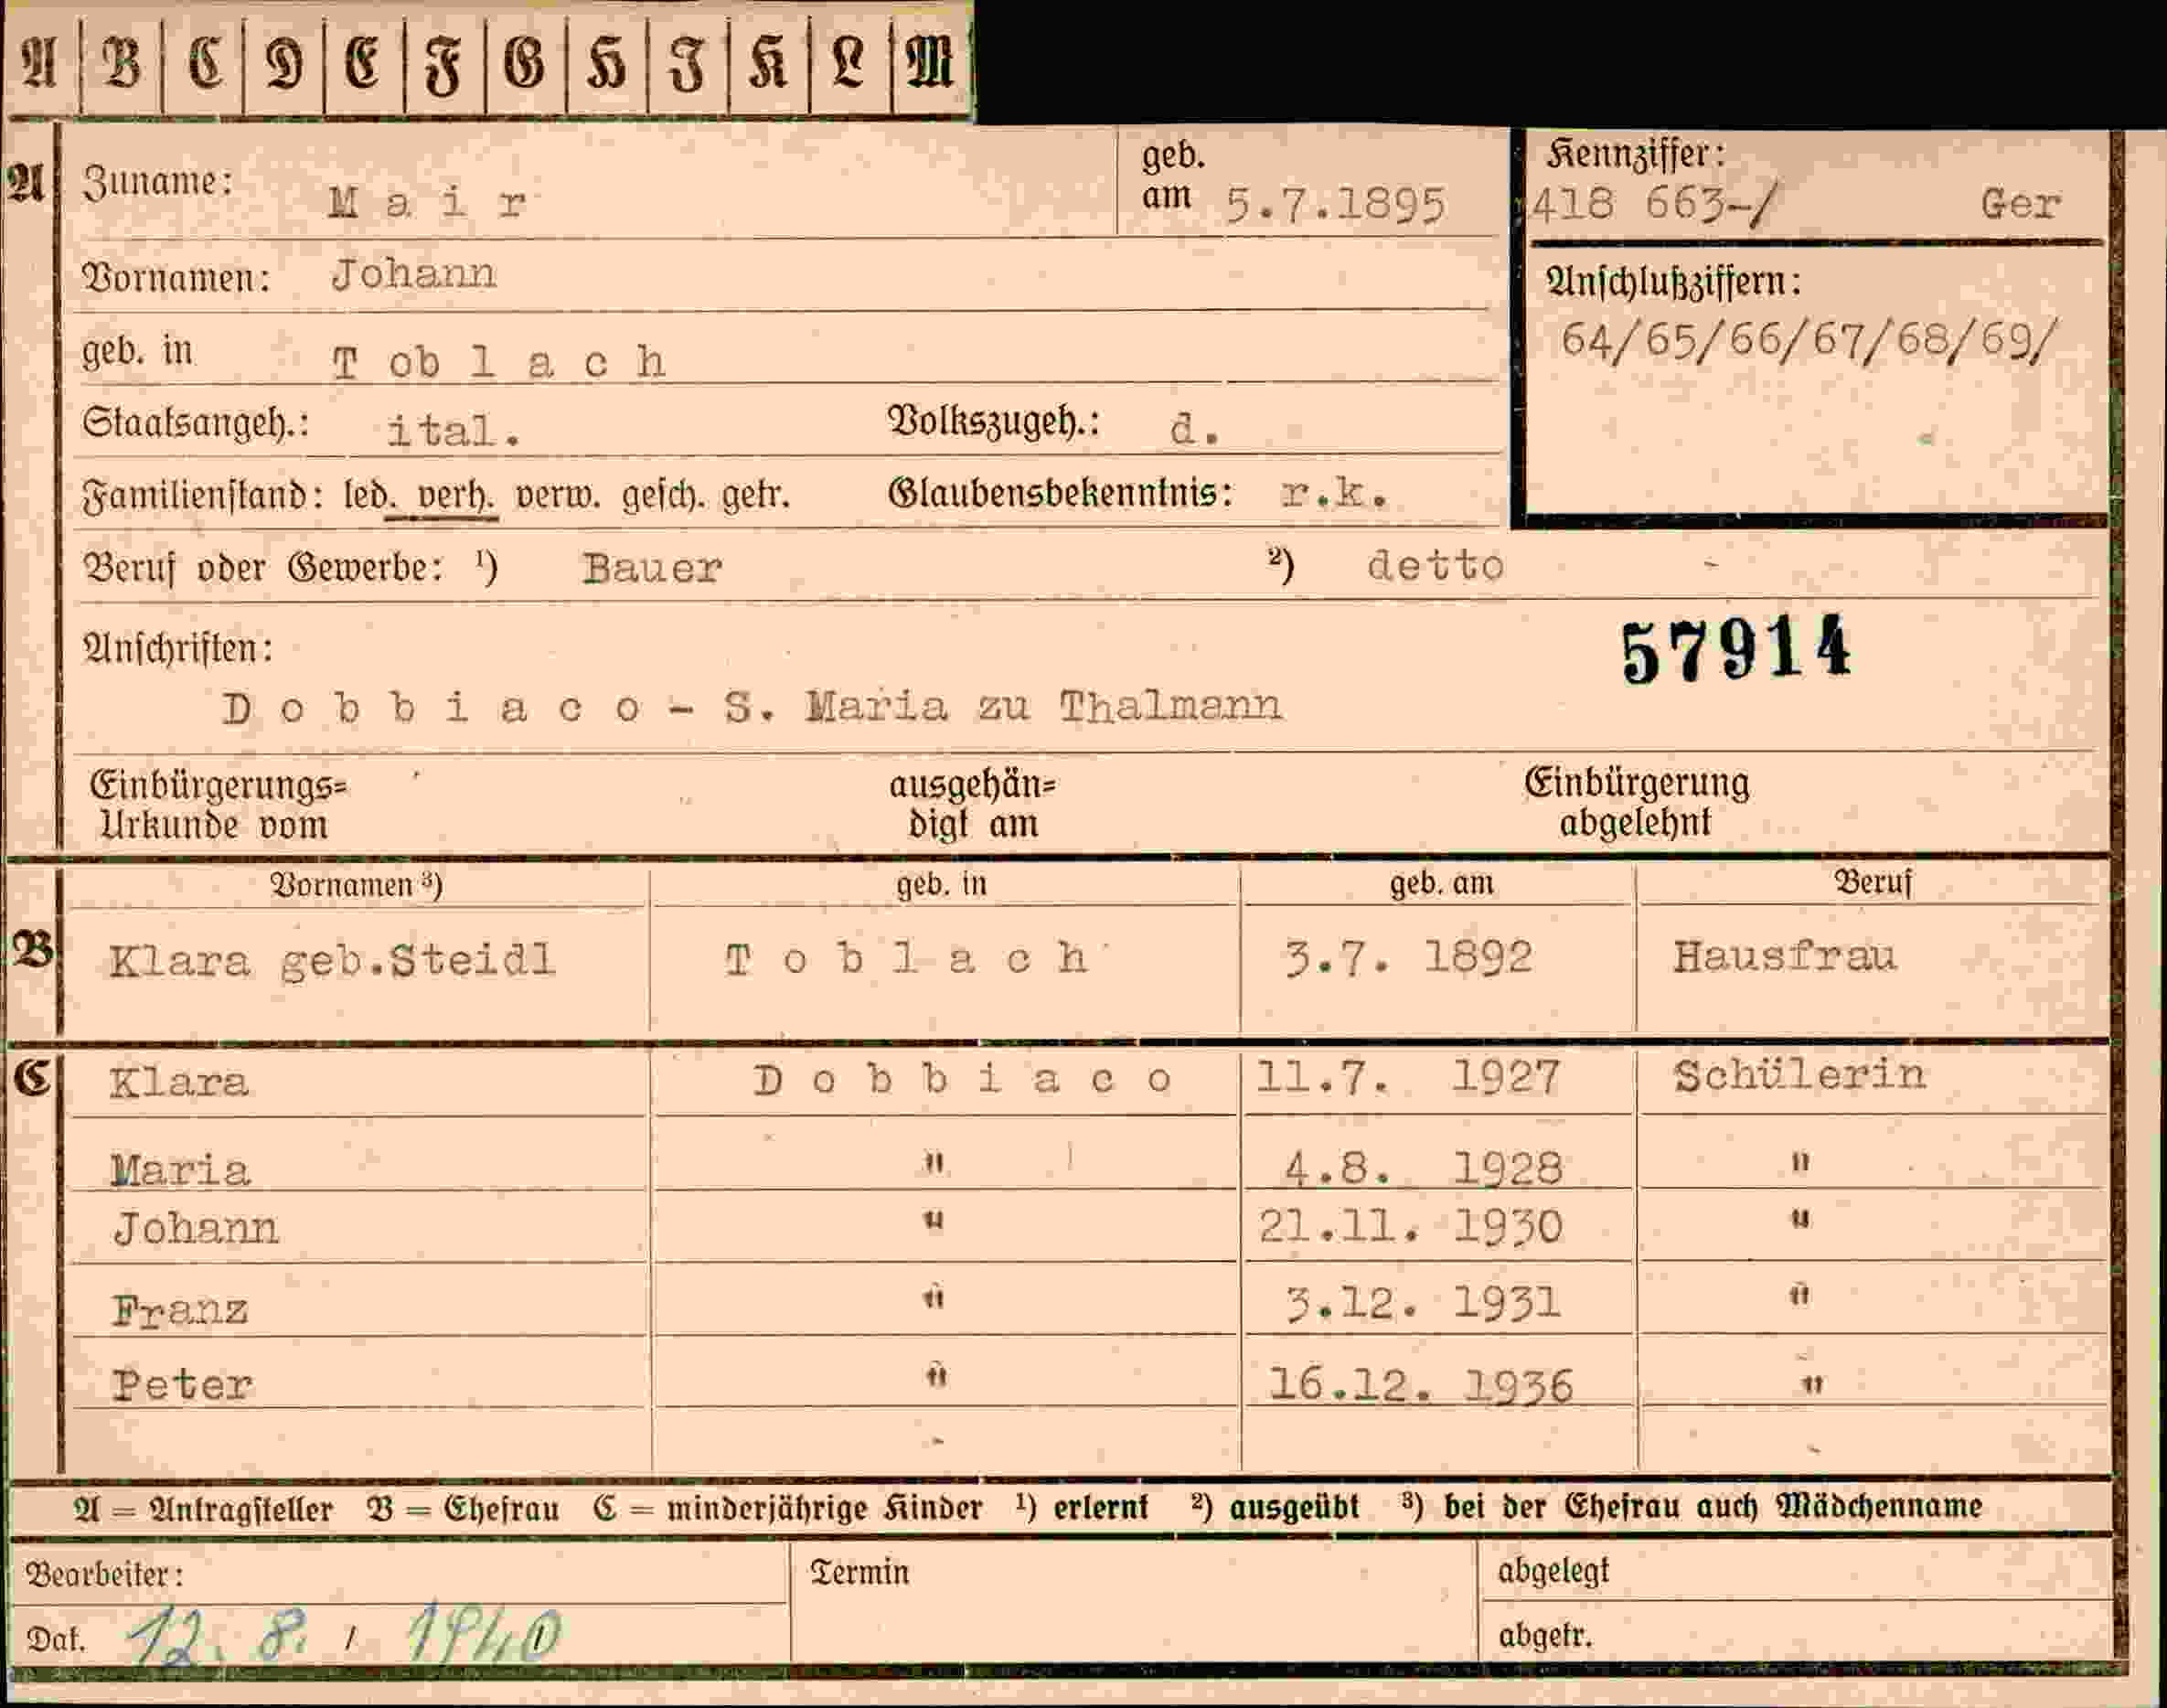 A B C D E F G H J K L M
A Zuname: Mair geb. am 5.7.1895 Kennziffer: 418 663-/ Ger
Vornamen: Johann Anschlußziffern:
64/65/66/67/68/69/
geb. in Toblach
Staatsangeh.: ital. Volkszugeh.: d.
Familienstand: led. verh. verw. gesch. getr. Glaubensbekenntnis: r.k.
Beruf oder Gewerbe: ¹) Bauer ²) detto
Anschriften: 57914
Dobbiaco - S. Maria zu Thalmann
Einbürgerungs= ausgehän= Einbürgerung
Urkunde vom digt am abgelehnt
Vornamen ³) geb. in geb. am Beruf
B Klara geb.Steidl Toblach 3.7. 1892 Hausfrau
C Klara Dobbiaco 11.7. 1927 Schülerin
Maria " 4.8. 1928 "
Johann " 21.11. 1930 "
Franz " 3.12. 1931 "
Peter " 16.12. 1936 "
A = Antragsteller B = Ehefrau C = minderjährige Kinder ¹) erlernt ²) ausgeübt ³) bei der Ehefrau auch Mädchenname
Bearbeiter: Termin abgelegt
Dat. 12. 8. / 1940 abgetr.